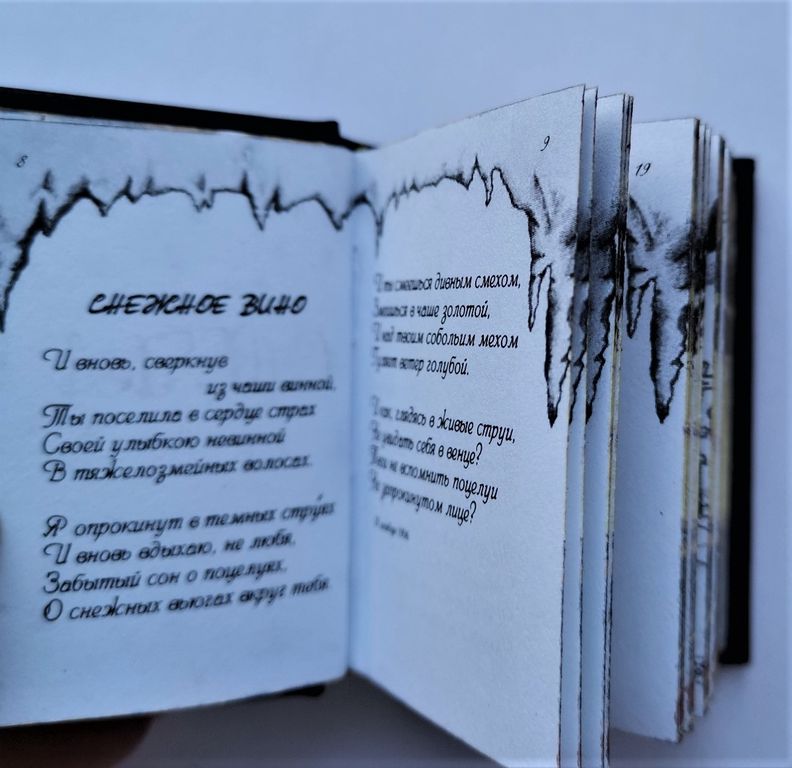 8
СНЕЖНОЕ ВИНО
И вновь, сверкнув
из чаши винной,
Ты поселила в сердце страх
Своей улыбкою невинной
В тяжелозмейных волосах.
Я опрокинут в темных стру́ях
И вновь вдыхаю, не любя,
Забытый сон о поцелуях,
О снежных вьюгах вкруг тебя.
9
И ты смеешься дивным смехом,
Змеишься в чаше золотой,
И над твоим собольим мехом
Гуляет ветер голубой.
И как, глядясь в живые струи,
Не увидать себя в венце?
Твои не вспомнить поцелуи
На запрокинутом лице?
19